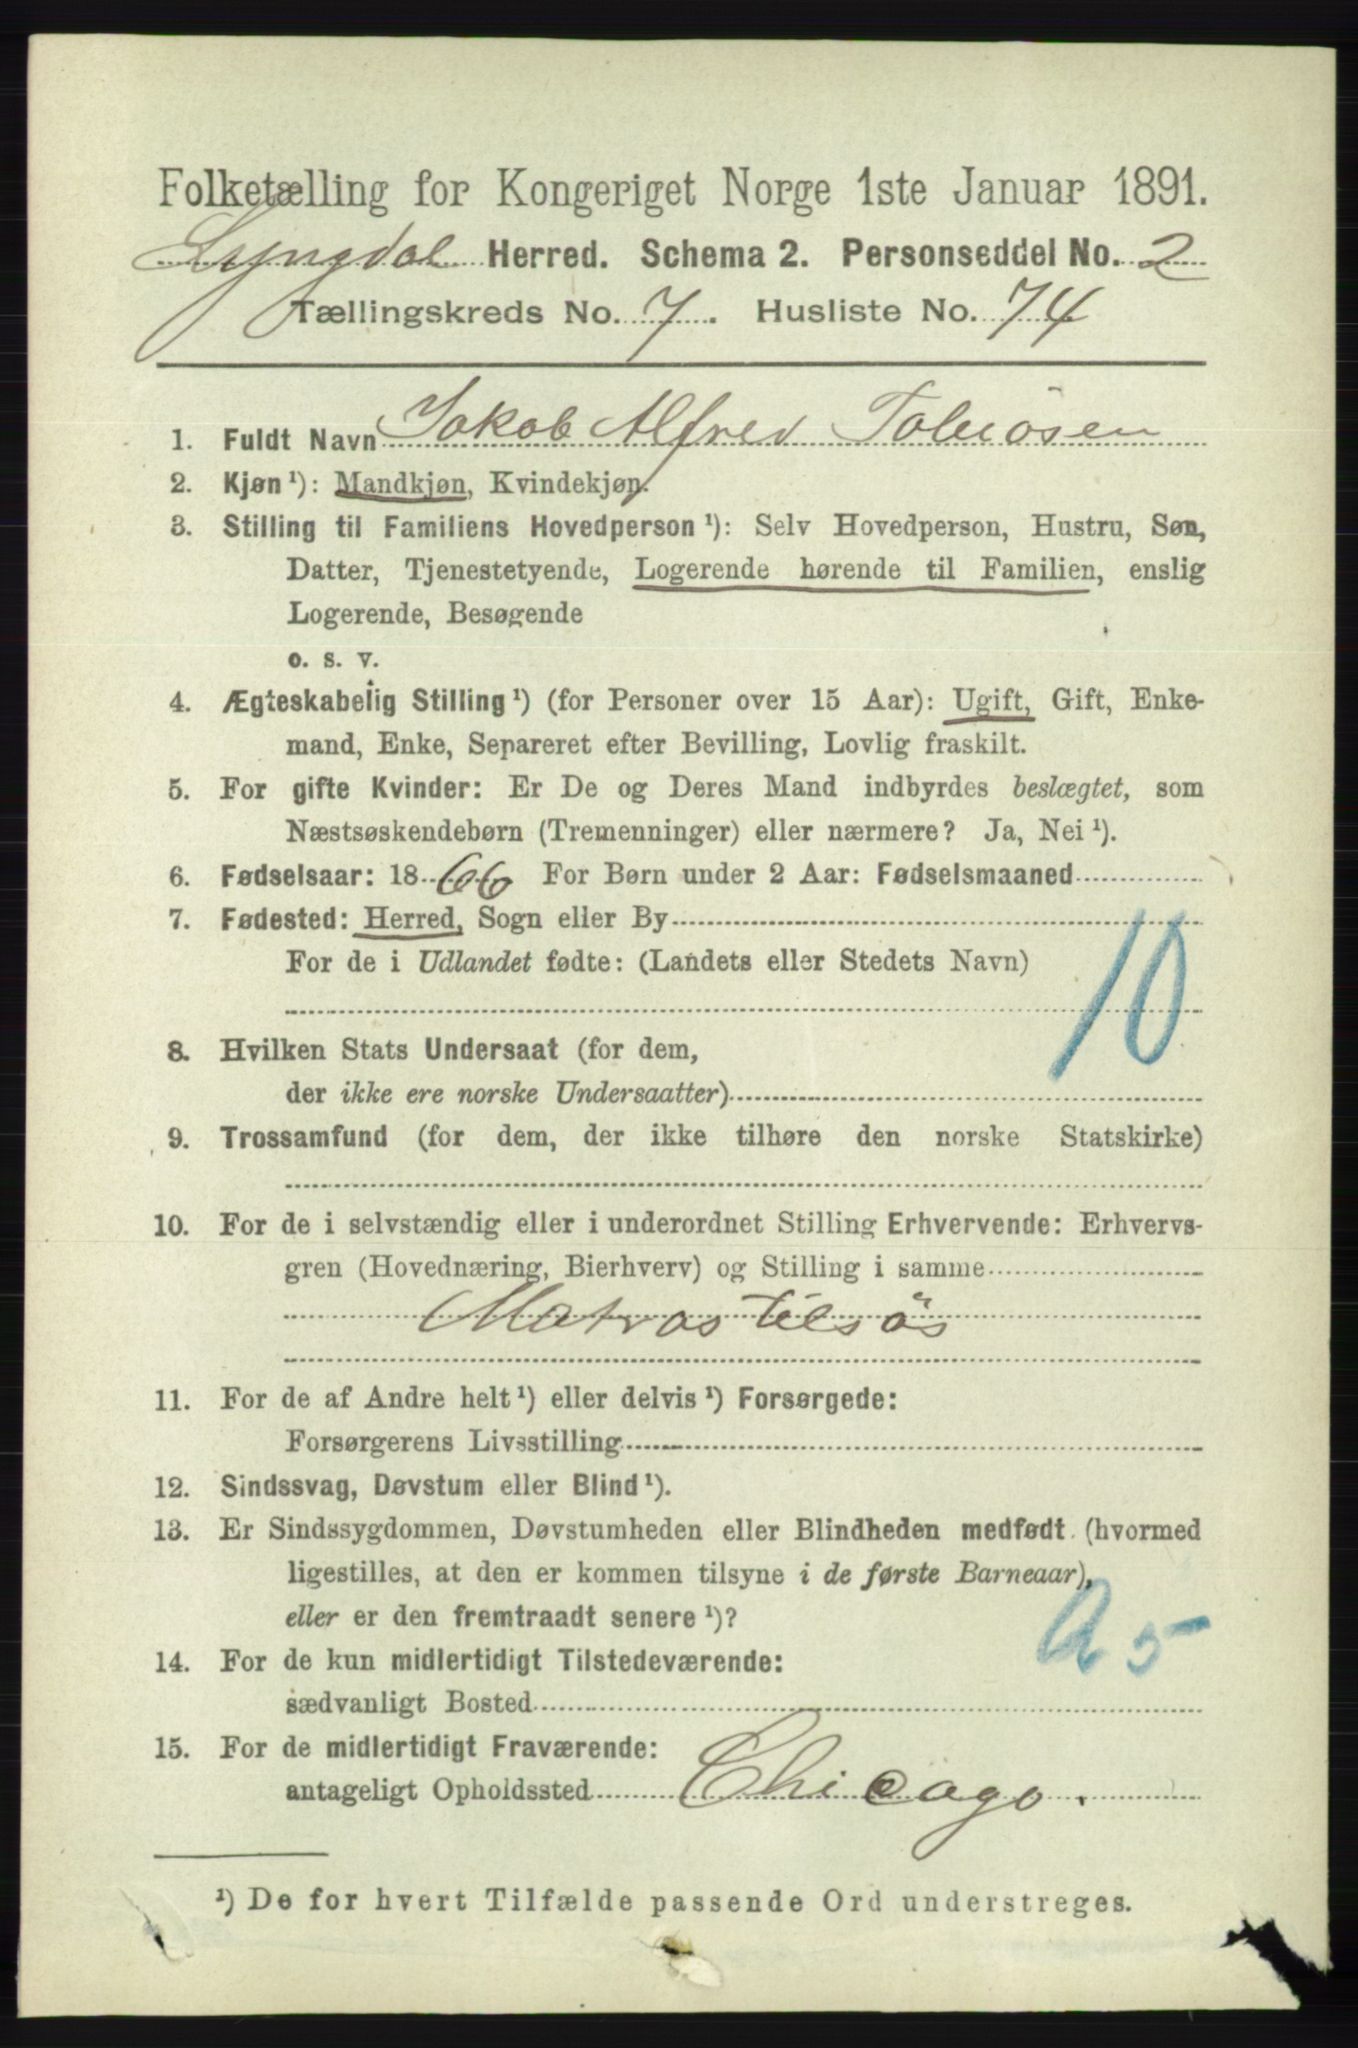 Folketælling for Kongeriget Norge 1ste Januar 1891.
Lyngdal Herred. Schema 2. Personseddel No. 2
Tællingskreds No. 7. Husliste No. 74
1. Fuldt Navn Jakob Alfred Tobiösen
2. Kjøn ¹): Mandkjøn, Kvindekjøn.
3. Stilling til Familiens Hovedperson ¹): Selv Hovedperson, Hustru, Søn,
Datter, Tjenestetyende, Logerende hørende til Familien, enslig
Logerende, Besøgende
o. s. v.
4. Ægteskabelig Stilling ¹) (for Personer over 15 Aar): Ugift, Gift, Enke-
mand, Enke, Separeret efter Bevilling, Lovlig fraskilt.
5. For gifte Kvinder: Er De og Deres Mand indbyrdes beslægtet, som
Næstsøskendebørn (Tremenninger) eller nærmere? Ja, Nei ¹).
6. Fødselsaar: 1866 For Børn under 2 Aar: Fødselsmaaned
7. Fødested: Herred, Sogn eller By
10
For de i Udlandet fødte: (Landets eller Stedets Navn)
8. Hvilken Stats Undersaat (for dem,
der ikke ere norske Undersaatter)
9. Trossamfund (for dem, der ikke tilhøre den norske Statskirke)
10. For de i selvstændig eller i underordnet Stilling Erhvervende: Erhvervs-
gren (Hovednæring, Bierhverv) og Stilling i samme
Matros tilsös
11. For de af Andre helt ¹) eller delvis ¹) Forsørgede:
Forsørgerens Livsstilling
12. Sindssvag, Døvstum eller Blind ¹).
13. Er Sindssygdommen, Døvstumheden eller Blindheden medfødt (hvormed
ligestilles, at den er kommen tilsyne i de første Barneaar),
eller er den fremtraadt senere ¹)?
A 5
14. For de kun midlertidigt Tilstedeværende:
sædvanligt Bosted
15. For de midlertidigt Fraværende:
antageligt Opholdssted Chicago.
¹) De for hvert Tilfælde passende Ord understreges.